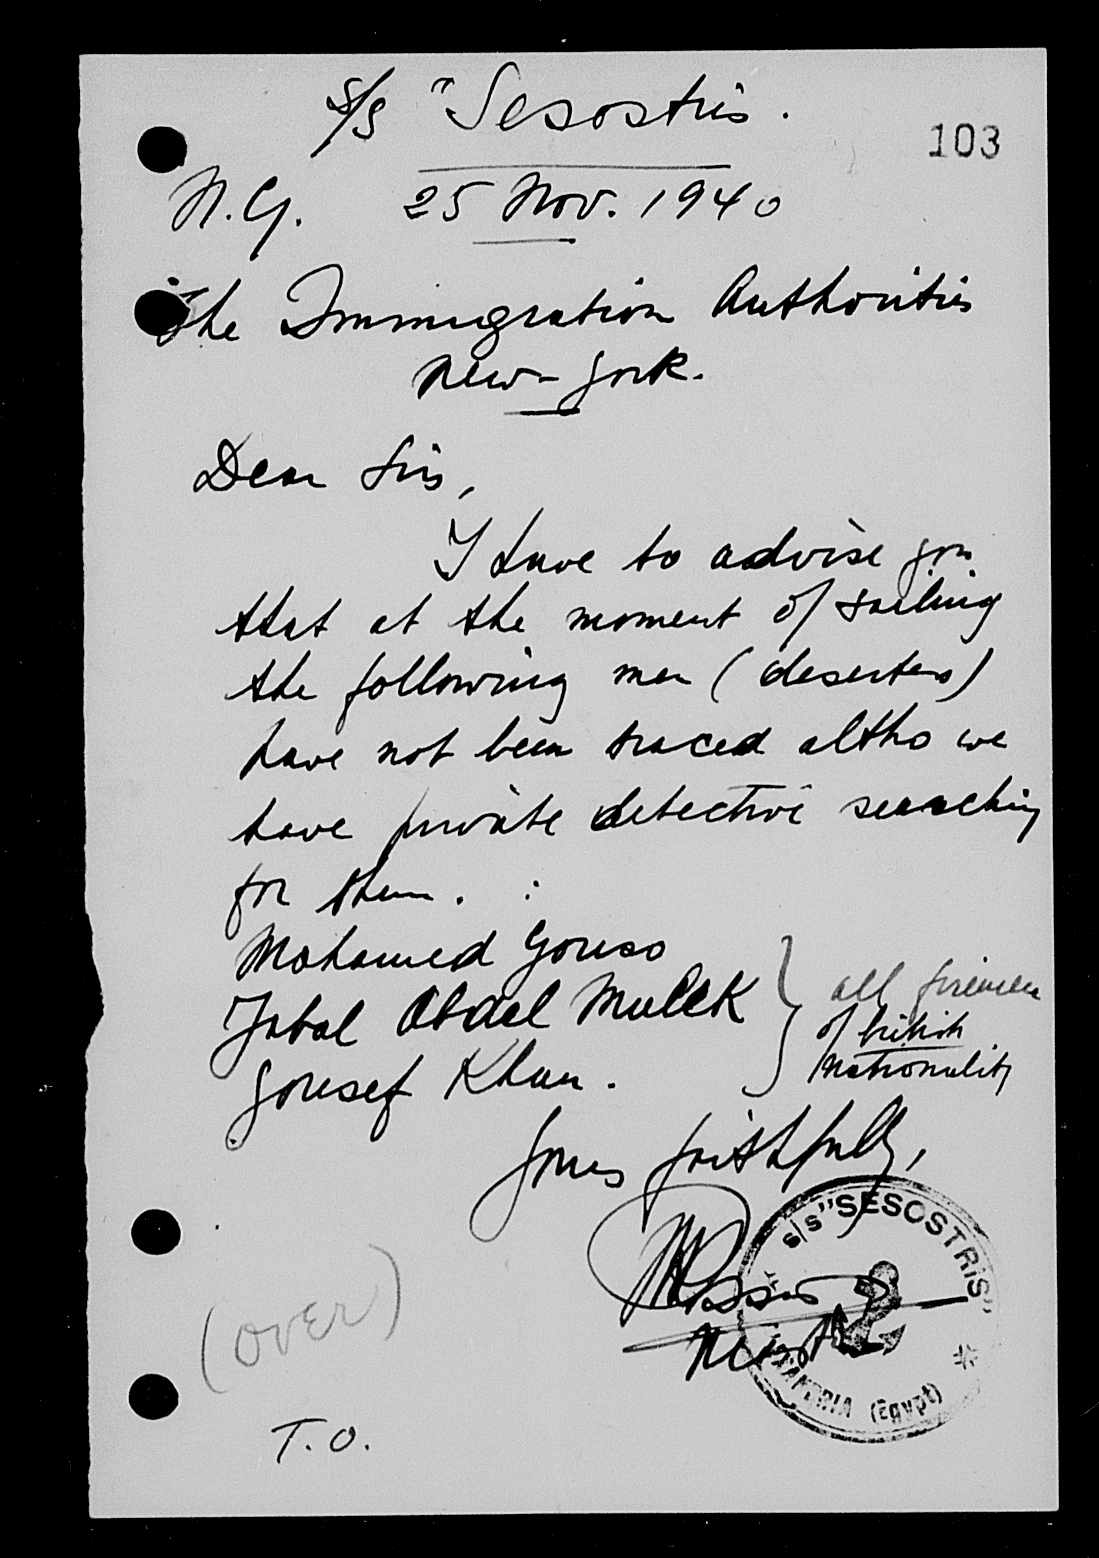 S/S "Sesostris.
103
N.Y. 25 Nov. 1940
The Immigration Authorities
New-York.
Dear Sirs,
I have to advise you
that at the moment of sailing
the following men (deserters)
have not been traced altho we
have private detective searching
for them. :
Mohamed Youso
Jabal Abdel Mulek
Yousef Khan.
} all firemen
of british
nationality
Yours faithfully,
s/s "SESOSTRIS"
Master
(Egypt)
(over)
T.O.